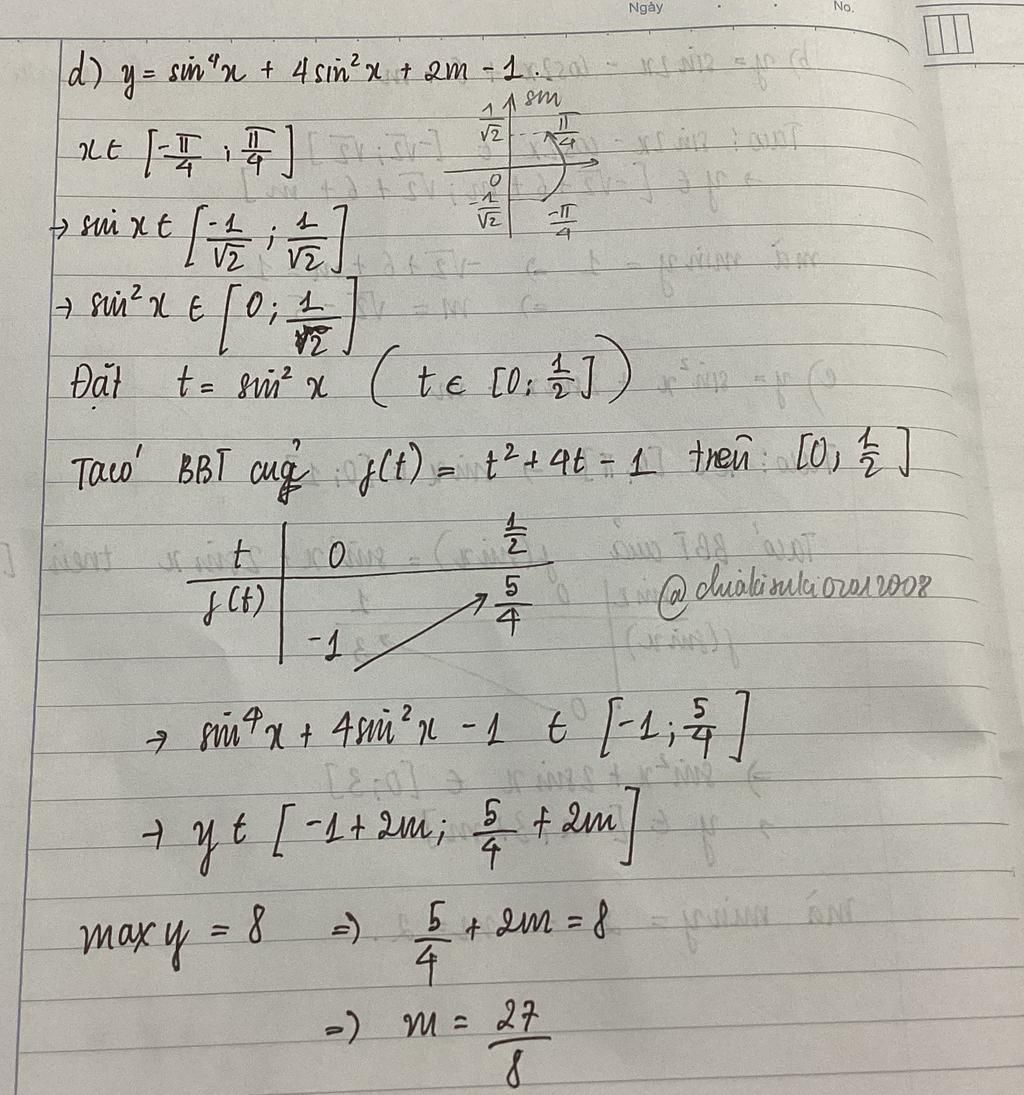 Ngày No.
d) y = sin⁴x + 4sin²x + 2m - 1.
x ∈ [-π/4 ; π/4]
1/√2 sin π/4
0
-1/√2 -π/4
→ sin x ∈ [-1/√2 ; 1/√2]
→ sin²x ∈ [0 ; 1/2]
Đặt t = sin²x (t ∈ [0; 1/2])
Ta có BBT của f(t) = t² + 4t - 1 trên [0, 1/2]
t 0 1/2
f(t) -1 5/4
→ sin⁴x + 4sin²x - 1 ∈ [-1; 5/4]
→ y ∈ [-1 + 2m; 5/4 + 2m]
max y = 8 => 5/4 + 2m = 8
=> m = 27/8